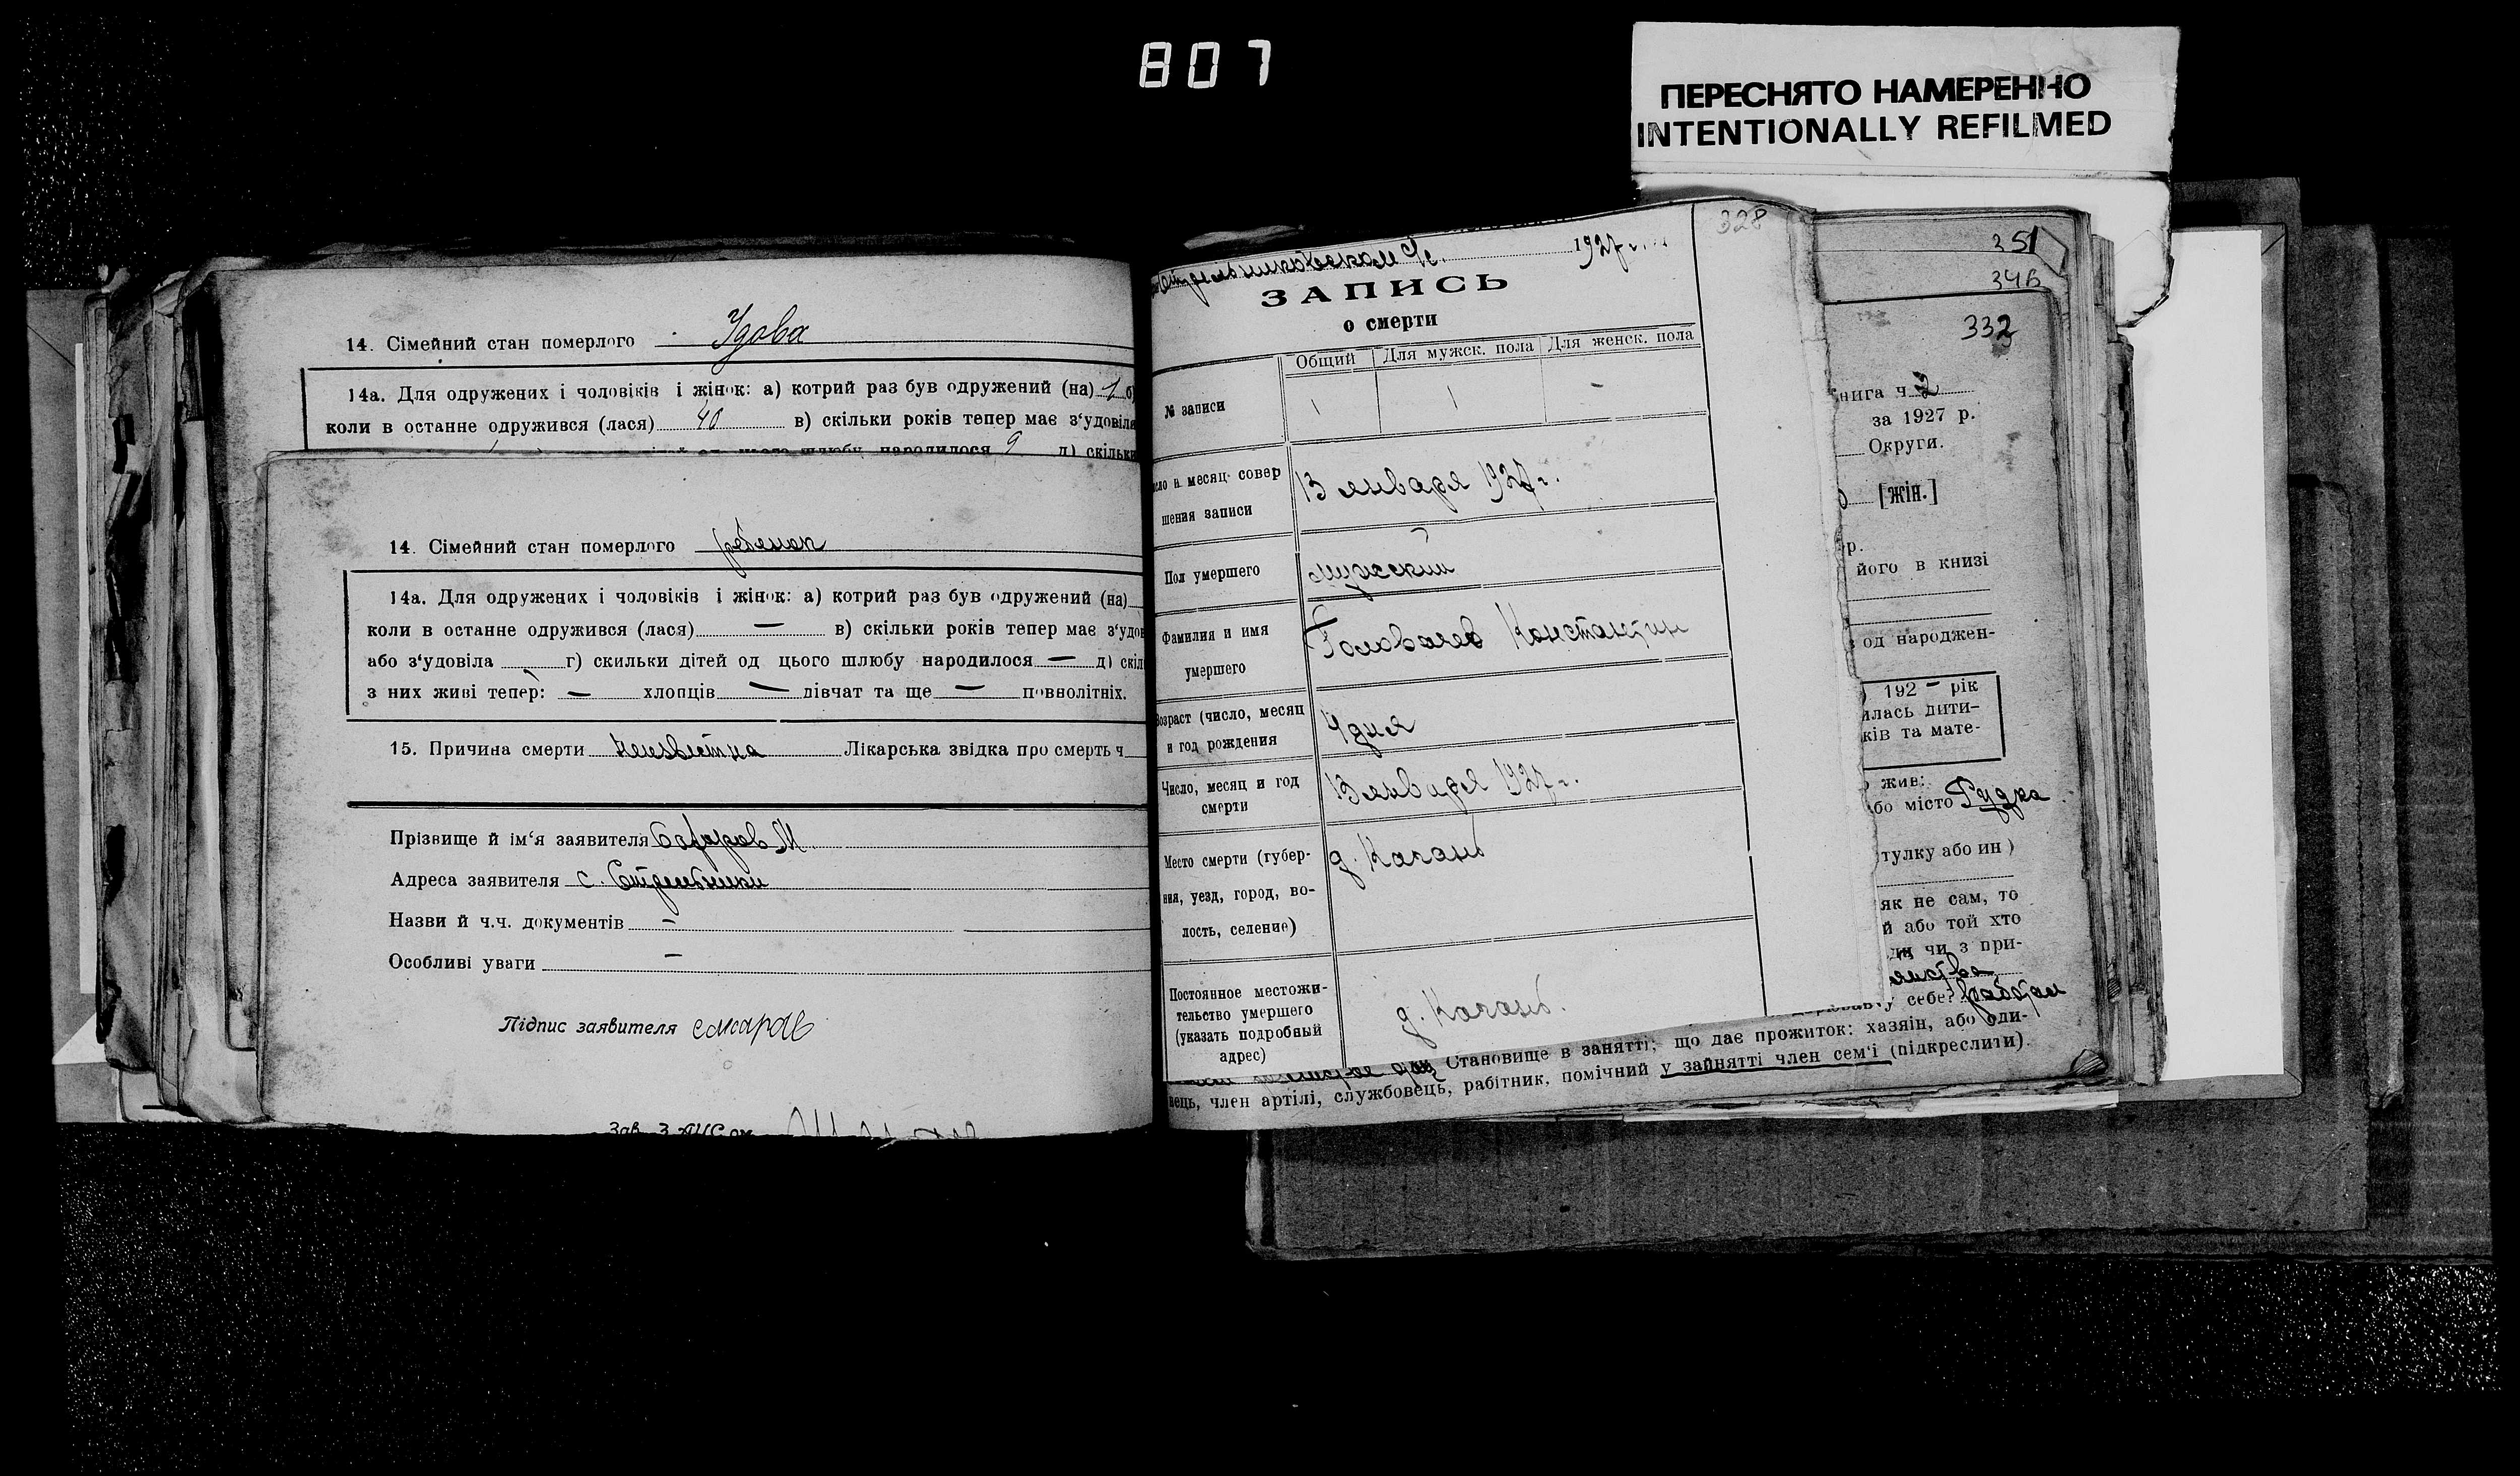 807
ПЕРЕСНЯТО НАМЕРЕННО
INTENTIONALLY REFILMED
14. Сімейний стан померлого Удова
14а. Для одружених і чоловіків і жінок: а) котрий раз був одружений (на) 1 б)
коли в останне одружився (лася) 40 в) скільки років тепер має з‘удовіла
шлюбу народилося 9 д) скільки
14. Сімейний стан померлого ребенок
14а. Для одружених і чоловіків і жінок: а) котрий раз був одружений (на)
коли в останне одружився (лася) — в) скільки років тепер має з‘удов
або з‘удовіла г) скильки дітей од цього шлюбу народилося — д) скіл
з них живі тепер: — хлопців — дівчат та ще — повнолітніх.
15. Причина смерти Неизвестна Лікарська звідка про смерть ч
Прізвище й ім‘я заявителя М.
Адреса заявителя с. Стрельники
Назви й ч.ч. документів —
Особливі уваги —
Підпис заявителя
Зав. ЗАГС‘ом
328
1927 г.
ЗАПИСЬ
о смерти
Общий Для мужск. пола Для женск. пола
№ записи 1 1 —
число и месяц совер
шения записи 13 января 1927 г.
Пол умершего мужский
Фамилия и имя
умершего Головачев Константин
Возраст (число, месяц
и год рождения 4 дня
Число, месяц и год
смерти 13 января 1927 г.
Место смерти (губер-
ния, уезд, город, во-
лость, селение) д.
Постоянное местожи-
тельство умершего
(указать подробный
адрес) д.
351
346
332
книга ч. 2
за 1927 р.
Округи.
[жін.]
р.
його в книзі
од народжен-
192 — рік
илась дити-
ків та мате-
жив:
бо місто Рудка
тулку або ин)
як не сам, то
й або той хто
ди чи з при-
у себе?
Становище в занятті; що дає прожиток: хазяін, або оди-
вець, член артілі, службовець, рабітник, помічний у зайнятті член сем‘і (підкреслити).